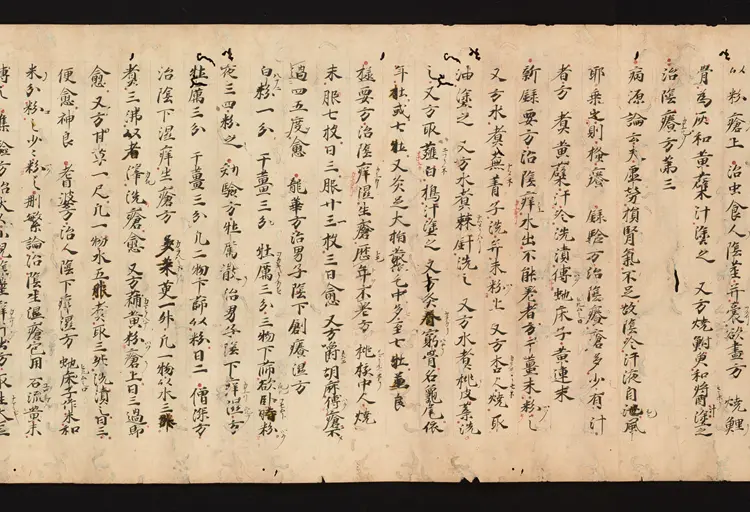 以粉瘡上 治虫食人陰莖并囊欲盡方 燒鯉
骨為灰和黄蘗汁塗之 又方燒更和醤塗之
治陰癢方第三
病源論云大虚勞損腎氣不足故陰冷汗液自泄風
耶乗之則搔癢 録驗方治陰癢瘡多少有汁
者方 煮黄蘗汁冷洗漬傅虵床子黄連末
新録要方治陰痒水出不能差者方干薑末粉之
又方水煮蕪菁子洗并末粉上 又方杏人燒取
油塗之 又方水煮棘針洗之 又方水煮桃皮葉洗
之 又方取白楊汁塗之 又方灸脊窮骨名龜尾依
年壮或七壮又灸足大指藂毛中多至七壮並良
極要方治陰痒濕生瘡歴年不差方 桃核中人燒
末服七枚日三服廿三枚三日愈 又方嚼胡麻傅
過四五度愈 龍華方治男子陰下創癢濕方
白粉一分 干薑三分 牡厲三分三物下篩欲卧時粉
夜三四粉之 効驗方牡厲散治男子陰下痒濕方
牡厲三分 干薑三分凡二物下篩以粉日二 僧深方
治陰下濕痒生瘡方 呉茱萸一升凡一物以水三升
煮三沸以者滓洗瘡愈 又方蒲黄粉瘡上日三過即
愈 又方甘草一尺凡一物水五升煮取三升洗漬日三
便愈神良 耆婆方治人陰下痒濕方 虵床子作末和
米粉少之粉之 刪繁論治陰生濕瘡包用石流黄末